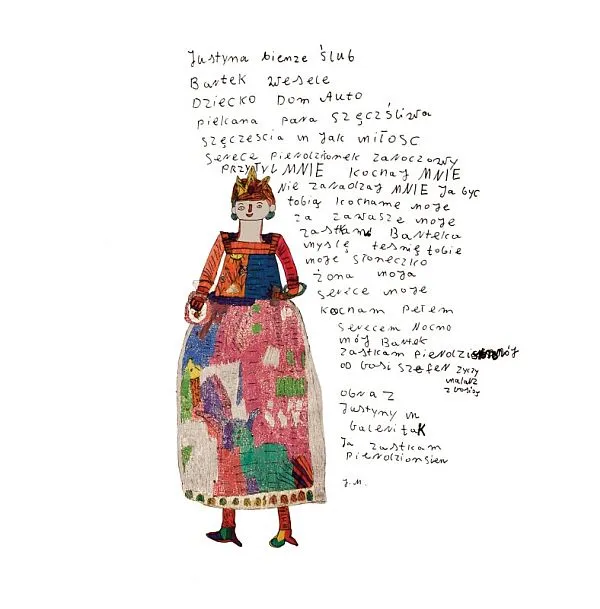 Justyna bienze ślub
Bartek wesele
Dziecko Dom Auto
piekana para szęcześliwa
szęczescia m jak miłosc
serece pierdzionek zaroczowy
PRZYTYL MNIE kochaj MNIE
nie zaradzaj MNIE ja byc
tobią kochame moje
za zawasze moje
zastkan Barteka
myslę tesnię tobie
moje słoneczko
żona moja
serece moje
kocham pełem
serecem nocno
mój Bartek
zastkam pierdzio
od Gosi szefen życzy
malarz
z Gosioj
obraz
Justyny m
Galenitak
Ja zastkam
pierdzionsien
J.M.